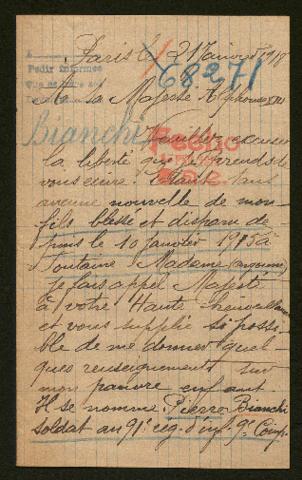 Paris le 21 Janvier 1918
Pedir informes
68271
A sa Majesté Alphonse XIII
Bianchi
Veuillez excuser
Fecho
la liberté que je prends de
vous écrire. Étant sans
aucune nouvelle de mon
fils blessé et disparu de
puis le 10 janvier 1915 à
Fontaine Madame (argonne)
je fais appel Majesté
à votre Haute bienveillance
et vous supplie si possi
ble de me donner quel
ques renseignements sur
mon pauvre enfant
Il se nomme Pierre Bianchi
soldat au 91e rég. d'inf. 9e Comp.